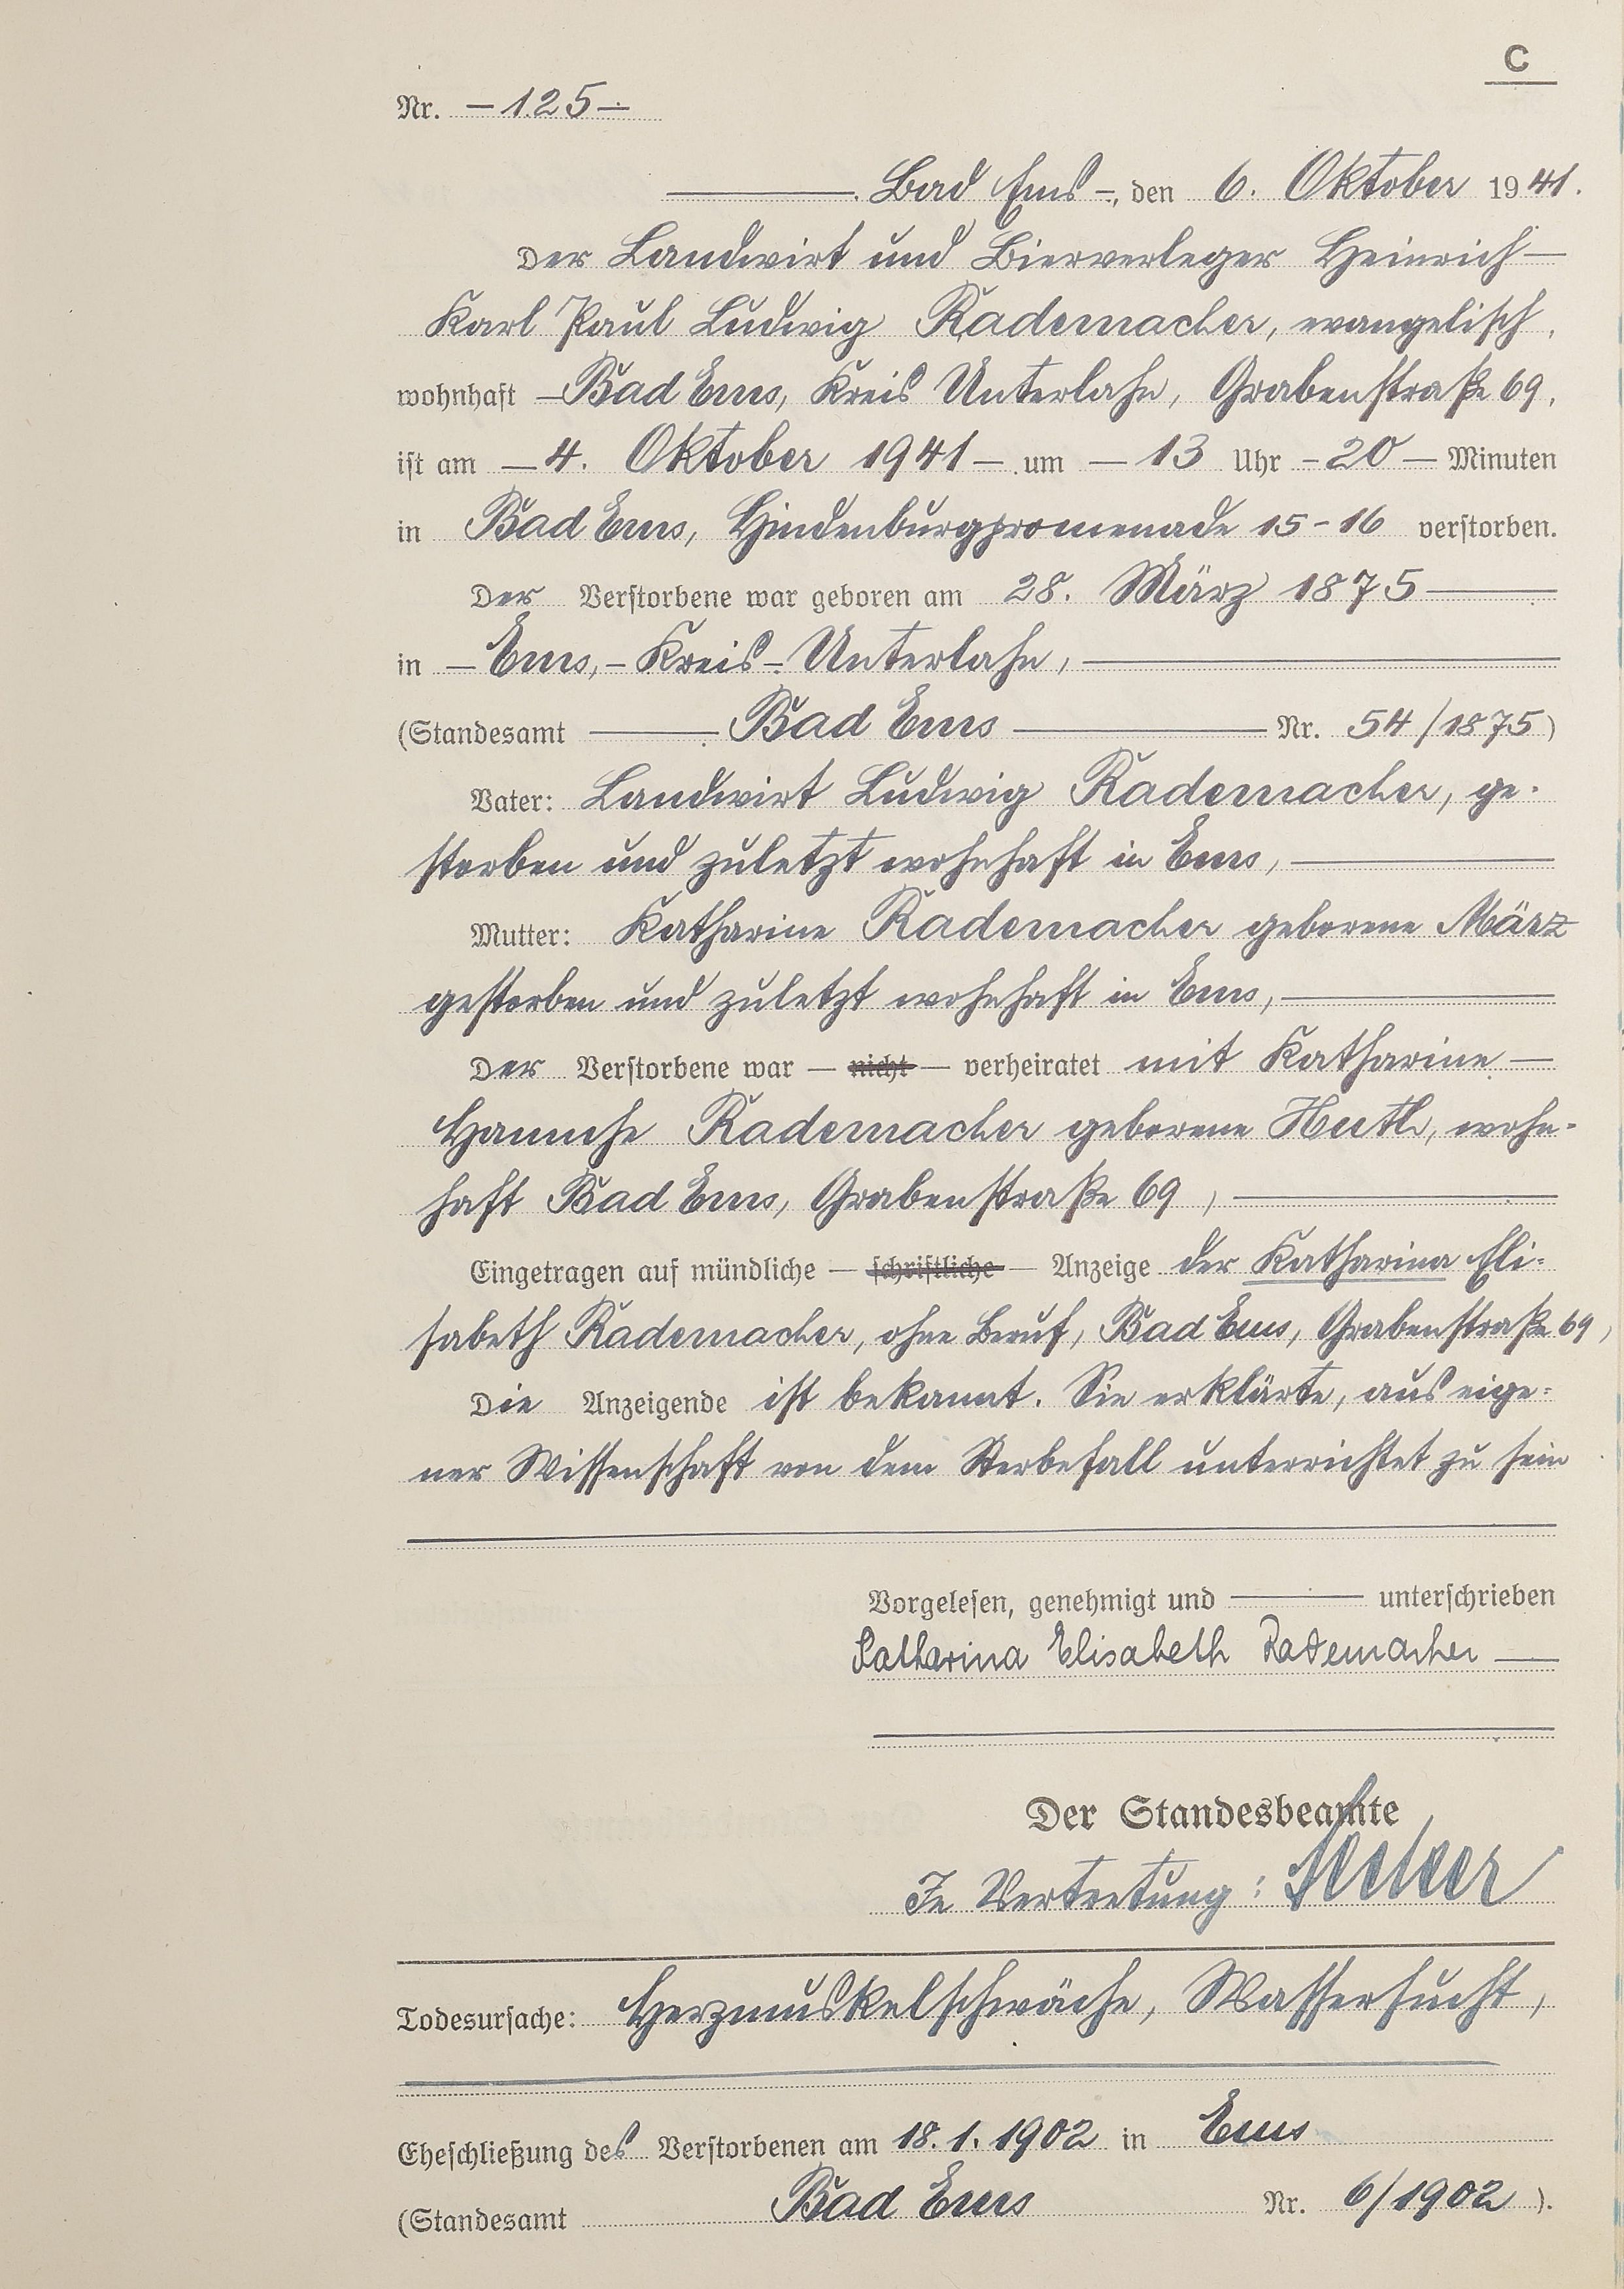 C
Nr. – 125 –
Bad Ems –, den 6. Oktober 1941.
Der Landwirt und Bierverleger Heinrich –
Karl Paul Ludwig Rademacher, evangelisch,
wohnhaft – Bad Ems, Kreis Unterlahn, Grabenstraße 69,
ist am – 4. Oktober 1941 – um – 13 Uhr – 20 – Minuten
in Bad Ems, Hindenburgpromenade 15-16 verstorben.
Der Verstorbene war geboren am 28. März 1875
in – Ems, – Kreis – Unterlahn,
(Standesamt Bad Ems Nr. 54/1875)
Vater: Landwirt Ludwig Rademacher, ge-
storben und zuletzt wohnhaft in Ems,
Mutter: Katharine Rademacher geborene März
gestorben und zuletzt wohnhaft in Ems,
Der Verstorbene war — nicht — verheiratet mit Katharine –
Rademacher geborene Huth, wohn-
haft Bad Ems, Grabenstraße 69,
Eingetragen auf mündliche — schriftliche — Anzeige der Katharina Eli-
sabeth Rademacher, ohne Beruf, Bad Ems, Grabenstraße 69,
Die Anzeigende ist bekannt. Sie erklärte, aus eige-
ner Wissenschaft von dem Sterbefall unterrichtet zu sein
Vorgelesen, genehmigt und unterschrieben
Katharina Elisabeth Rademacher
Der Standesbeamte
In Vertretung:
Todesursache: Herzmuskelschwäche, Wassersucht,
Eheschließung des Verstorbenen am 18.1.1902 in Ems
(Standesamt Bad Ems Nr. 6/1902).